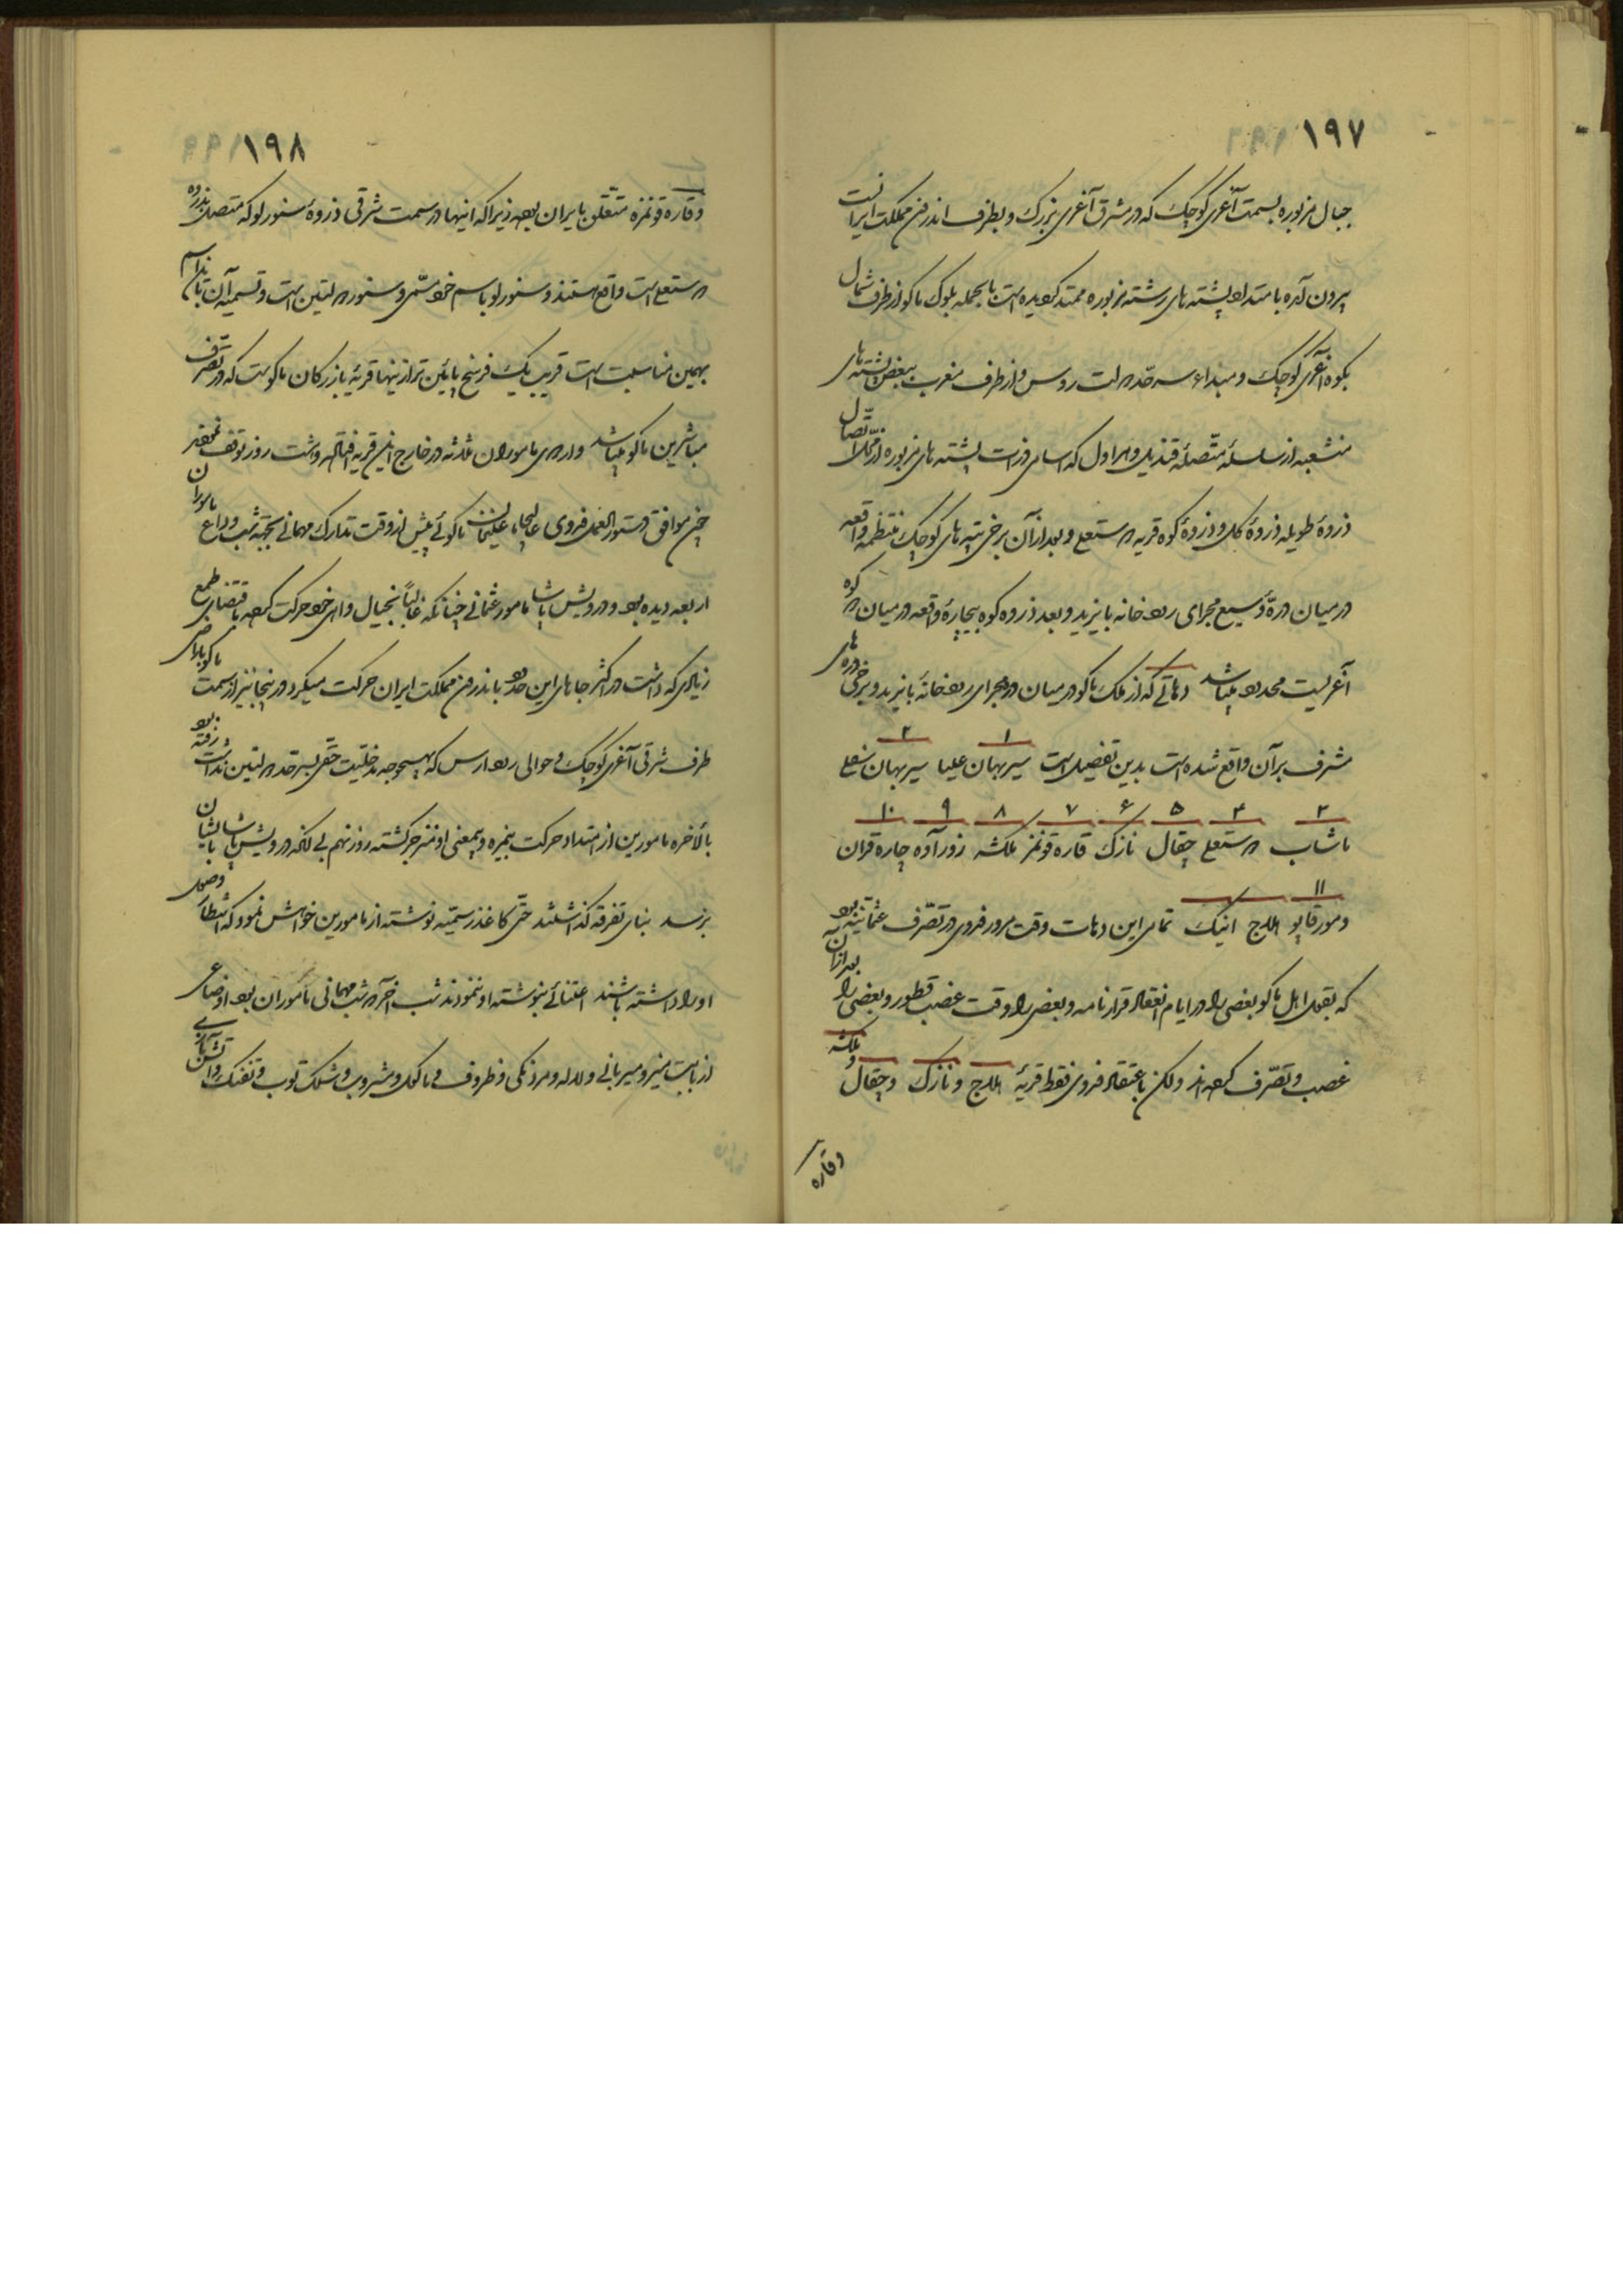 ۱۹۷
جبال مزبوره بسمت آغری کوچک که در مشرق آغری بزرگ و بطرف اندرون مملکت ایرانست
بیرون آمده بامتداد پشته های رشته مزبوره ممتد گردیده است بالجمله بلوک ماکو از طرف شمال
بکوه آغری کوچک و مبداء سرحد دولت روس و از طرف مغرب ببعض پشته های
منشعبه از سلسلهٔ متصلهٔ قندیل و هراول که اسامی ذوات پشته های مزبوره از محل اتصال
ذروهٔ طویله ذروهٔ کل و ذروهٔ کوه قریه درستعلی و بعد از آن برخی تپه های کوچک منتظمه واقعه
در میان درهٔ وسیع مجرای رودخانه بایزید و بعد ذروه کوه بیچارهٔ واقعه در میان دو کوه
آغریست محدود میباشد دهاتی که از ملک ماکو در میان دو مجرای رودخانهٔ بایزید و برخی دره های
مشرف بر آن واقع شده است بدین تفصیل است ۱ سیربهان علیا ۲ سیربهان سفلی
۳ ۴ ۵ ۶ ۷ ۸ ۹ ۱۰
باشاب درستعلی چقال نازک قاره قونمز ملکشه زورآده چاره قران
۱۱
دمور قاپو اللج انیک تمامی این دهات وقت مرور فدوی در تصرف عثمانیه بود
که بقول اهل ماکو بعضی را در ایام انعقاد قرارنامه و بعضی را وقت غصب قطور و بعضی را بعد از آن
غصب و تصرف کرده اند ولکن باعتقاد فدوی فقط قریهٔ اللج و نازک و چقال و ملکشه
وقاره
۱۹۸
وقاره قونمزه متعلق بایران بوده زیرا که اینها در سمت شرقی ذروهٔ سنورلو که متصل بذروه
درستعلی است واقع هستند و سنورلو باسم خود مسمی و سنور دولتین است و تسمیه آن باین اسم
بهمین مناسبت است قریب یک فرسخ پائین تر از اینها قریهٔ بازرگان ماکوست که در تصرف
مباشرین ماکو میباشد و اردوی ماموران ثلثه در خارج این قریه افتاده داشت روز توقف
چون موافق دستورالعمل فدوی عالیجاه علیخان ماکوئی پیش از وقت تدارک مهمانی بجهة شب وداع ماموران
اربعه دیده بود و درویش پاشا مامور عثمانی چنانکه غالباً بخیال و رای خود حرکت کرده باقتضای طمع
زیادی که داشت در اکثر جاهای این حدود باندرون مملکت ایران حرکت میکرد در اینجا نیز از سمت
طرف شرقی آغری کوچک و حوالی رود ارس که بهیچوجه مدخلیت حتی بسرحد دولتین نداشت رفته بود
بالاخره مامورین از امتداد حرکت بیمزه و بیمعنی او منزجر گشته روز نهم بی آنکه درویش پاشا بایشان
برسد بنای تفرقه گذاشتند حتی کاغذ رسمیه نوشته از مامورین خواهش نمود که انتظار وصول
او را داشته باشند اعتنائی بنوشته او ننمودند شب آخر که شب مهمانی ماموران بود اوضاعی
از بابت میز و میزبانی و لاله و مردنگی و ظروف و ماکول و مشروب و شلک توپ و تفنگ و آتش بازی